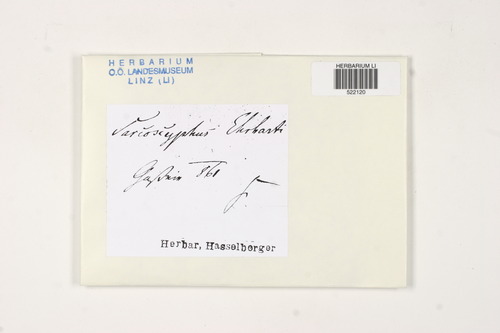 HERBARIUM
O.Ö. LANDESMUSEUM
LINZ (LI)
HERBARIUM LI
522120
Sarcoscyphus Ehrharti
Gastein 861
Herbar, Hasselberger